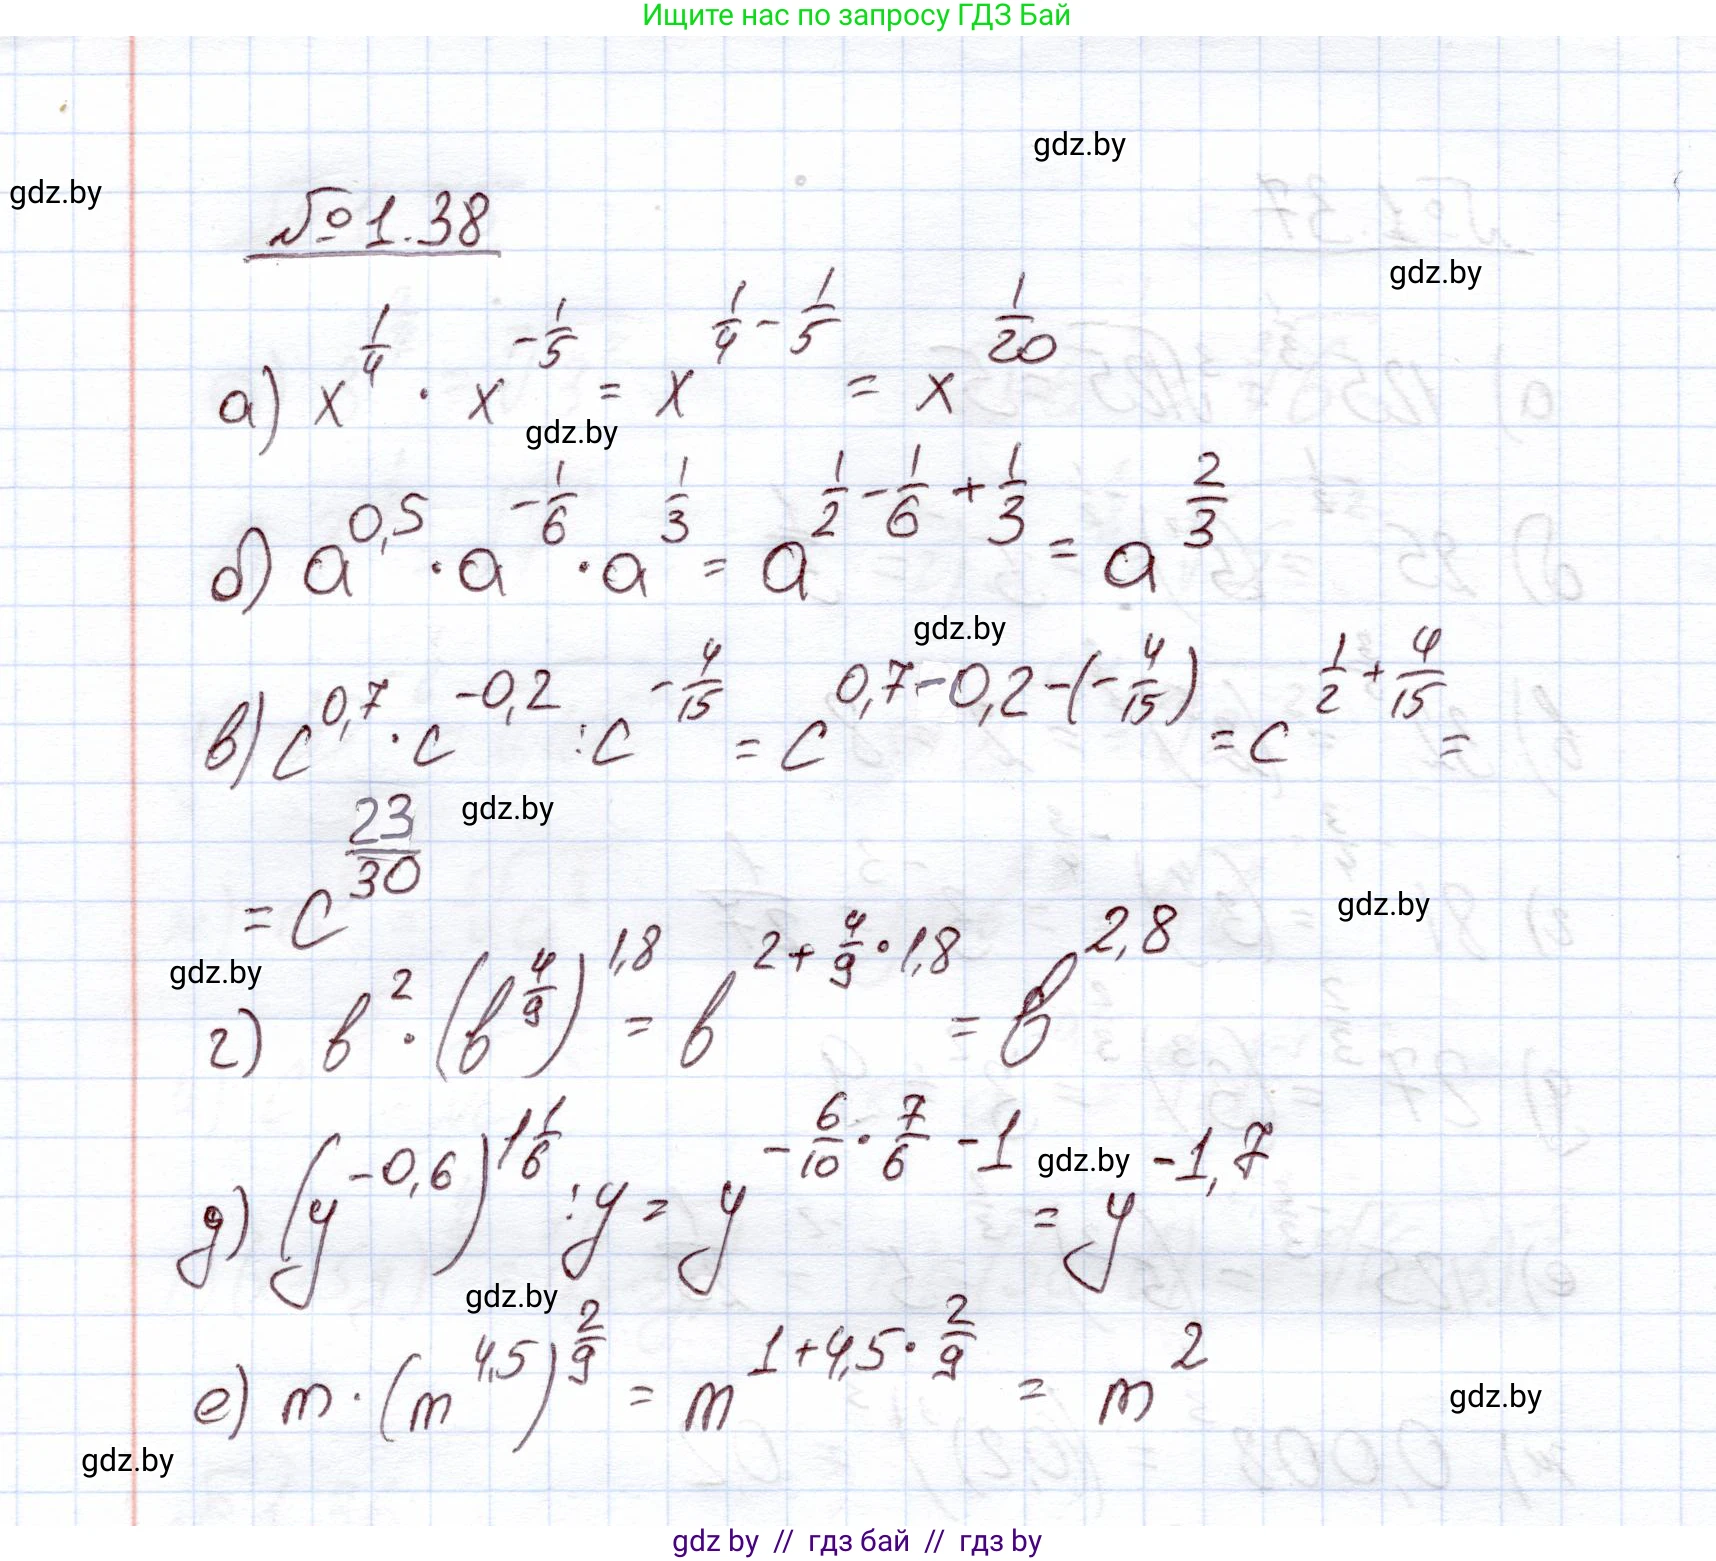 Ищите нас по запросу ГДЗ Бай
gdz.by
gdz.by
№ 1.38
gdz.by
а) x^(1/4) · x^(-1/5) = x^(1/4 - 1/5) = x^(1/20)
gdz.by
б) a^(0,5) · a^(-1/6) · a^(1/3) = a^(1/2 - 1/6 + 1/3) = a^(2/3)
gdz.by
в) c^(0,7) · c^(-0,2) : c^(-4/15) = c^(0,7-0,2-(-4/15)) = c^(1/2 + 4/15) =
gdz.by
= c^(23/30)
gdz.by
gdz.by
г) b^2 · (b^(4/9))^(1,8) = b^(2 + 4/9 · 1,8) = b^(2,8)
gdz.by
д) (y^(-0,6))^(1 1/6) : y = y^(-6/10 · 7/6 - 1) = y^(-1,7)
gdz.by
е) m · (m^(4,5))^(2/9) = m^(1+4,5 · 2/9) = m^2
gdz.by
gdz.by
gdz by // гдз бай // гдз by